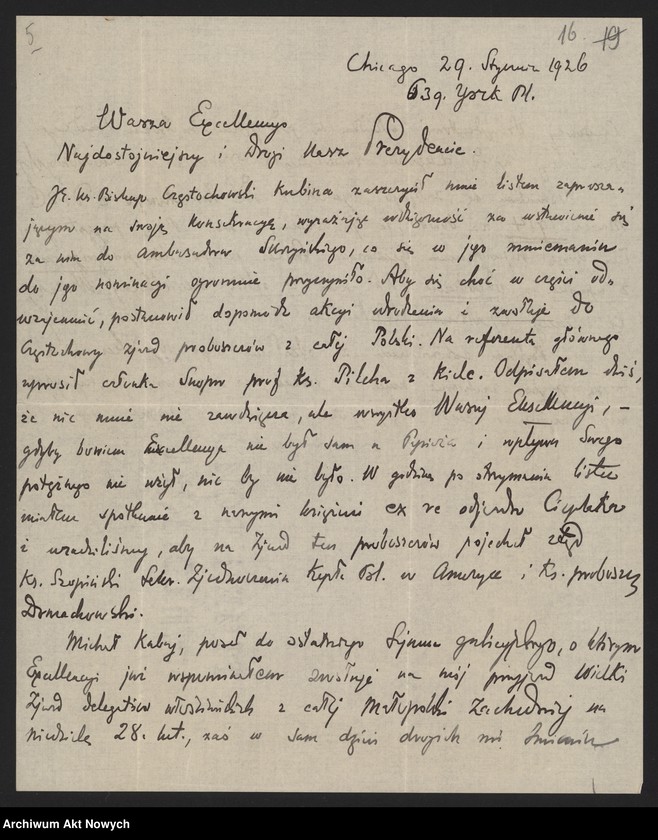 5
16. 19
Chicago 29. Stycznia 1926
639. York Pl.
Wasza Excellencyo
Najdostojniejszy i Drogi Nasz Prezydencie.
JE. ks. Biskup Częstochowski Kubina zaszczycił mnie listem zaprasza-
jącym na swoją konsekracyę, wyrażając wdzięczność za wstawienie się
za nim do Ambasadora Skrzyńskiego, co się w jego mniemaniu
do jego nominacyi ogromnie przyczyniło. Aby się choć w części od-
wzajemnić, postanowił dopomódz akcyi i zwołuje do
Częstochowy zjazd proboszczów z całej Polski. Na referenta głównego
uprosił członka prof ks. Pilcha z Kielc. Odpisałem dziś,
że nic mnie nie zawdzięcza, ale wszystko Waszej Excellencyi, –
gdyby bowiem Excellencya nie był sam u Papieża i wpływu Swego
potężnego nie użył, nic by nie było. W godzinę po otrzymaniu listu
miałem spotkanie z naszymi księżmi ex re odjazdu Cieplaka
i uradziliśmy, aby na Zjazd ten proboszczów pojechał stąd
ks. Szopiński Sekr. Zjednoczenia Kapł. Pol. w Ameryce i ks. proboszcz
Domachowski.
Michał poseł do ostatniego Sejmu galicyjskiego, o którym
Excellencyi już wspominałem zwołuje na mój przyjazd Wielki
Zjazd delegatów włościańskich z całej Małopolski Zachodniej na
niedzielę 28. lut., zaś w sam dzień drogich mi Imienin
Archiwum Akt Nowych